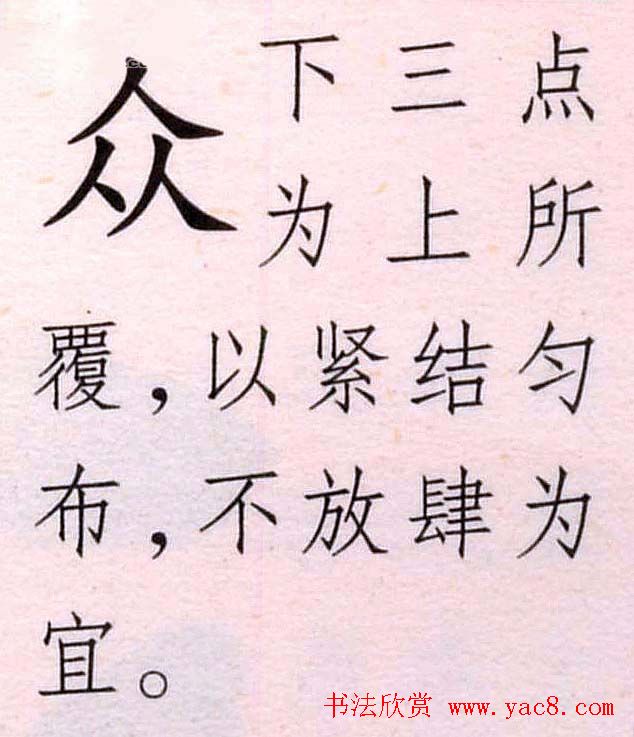 众 下三点
为上所
覆，以紧结匀
布，不放肆为
宜。
书法欣赏 www.yac8.com